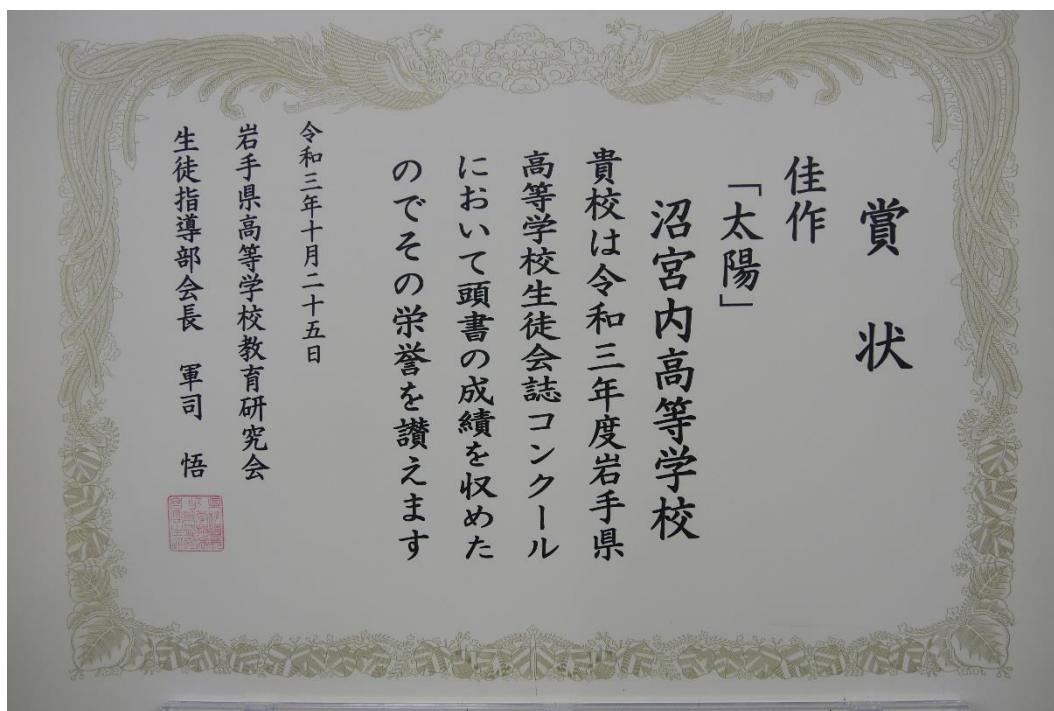 賞状
佳作
「太陽」
沼宮内高等学校
貴校は令和三年度岩手県
高等学校生徒会誌コンクール
において頭書の成績を収めた
のでその栄誉を讃えます
令和三年十月二十五日
岩手県高等学校教育研究会
生徒指導部会長 軍司 悟